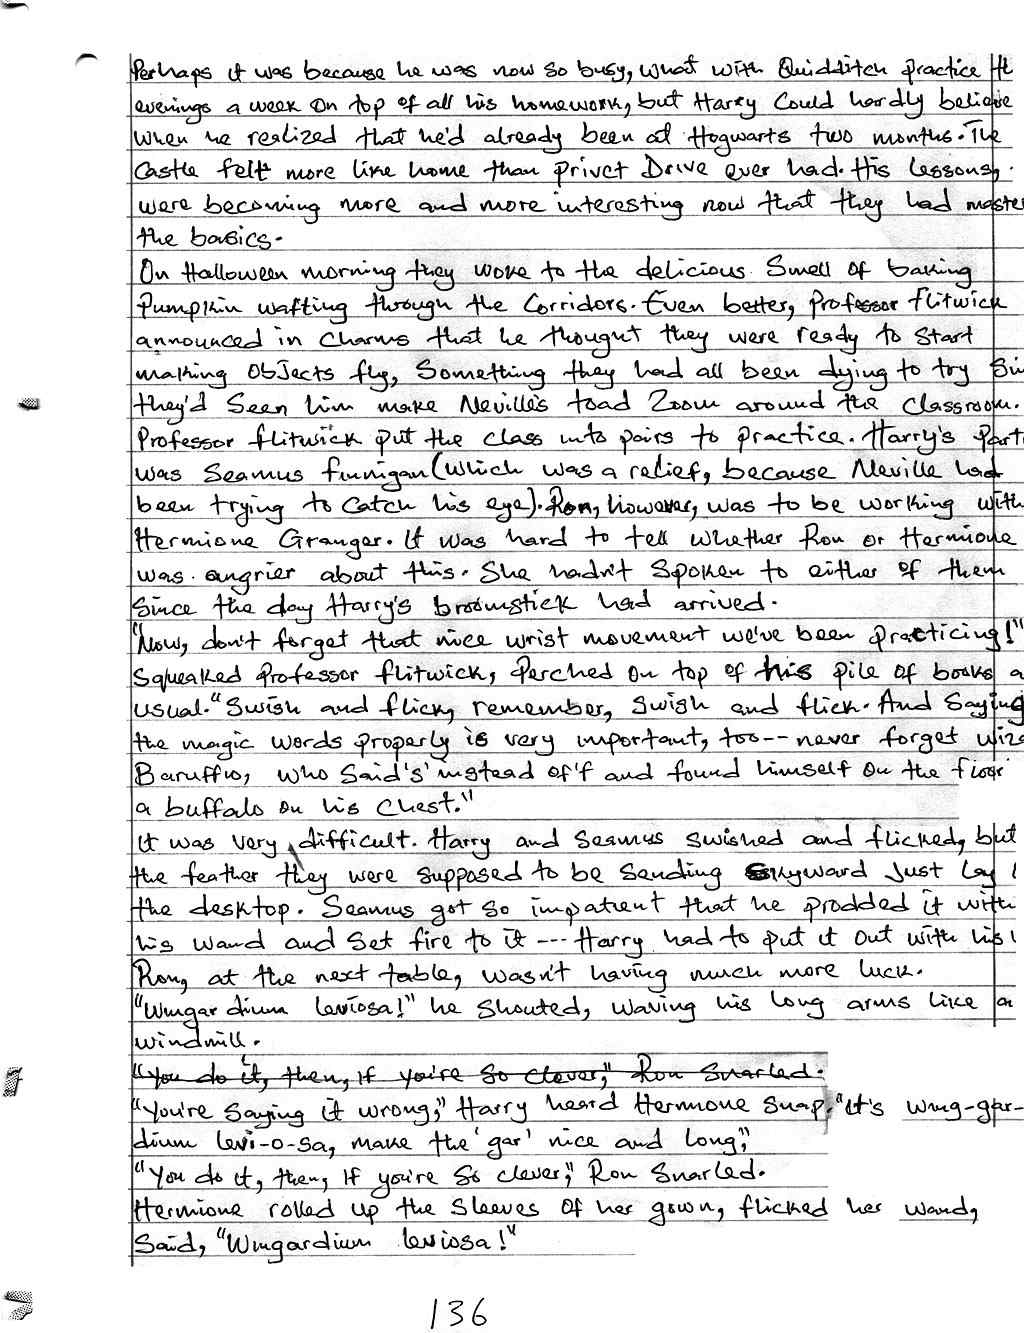 Perhaps it was because he was now so busy, what with Quidditch practice
evenings a week on top of all his homework, but Harry Could hardly believe
when he realized that he'd already been at Hogwarts two months. The
Castle felt more like home than privet Drive ever had. His lessons,
were becoming more and more interesting now that they had maste
the basics.
On Halloween morning they woke to the delicious Smell of baking
Pumpkin wafting through the Corridors. Even better, Professor flitwick
announced in Charms that he thought they were ready to Start
making Objects fly, Something they had all been dying to try Sin
they'd Seen him make Neville's toad Zoom around the classroom.
Professor flitwick put the class into pairs to practice. Harry's Part
was Seamus finnigan (which was a relief, because Neville had
been trying to Catch his eye). Ron, however, was to be working with
Hermione Granger. It was hard to tell whether Ron or Hermione
was angrier about this. She hadn't Spoken to either of them
Since the day Harry's broomstick had arrived.
"Now, don't forget that nice wrist movement we've been practicing!"
Squeaked Professor flitwick, Perched on top of his pile of books a
usual. "Swish and flick, remember, Swish and flick. And Saying
the magic words properly is very important, too -- never forget wiza
Baruffio, who Said 's' instead of 'f and found himself on the floor
a buffalo on his Chest."
It was very difficult. Harry and Seamus swished and flicked, but
the feather they were supposed to be Sending Skyward Just Lay
the desktop. Seamus got so impatient that he prodded it with
his wand and Set fire to it --- Harry had to put it out with his
Ron, at the next table, wasn't having much more luck.
"Wingardium leviosa!" he Shouted, waving his long arms like a
windmill.
"You do it, then, If you're So Clever," Ron Snarled.
"You're Saying it wrong," Harry heard Hermione Snap. "It's wing-gar-
dium levi-o-sa, make the 'gar' nice and long,"
"You do it, then, If you're So Clever," Ron Snarled.
Hermione rolled up the Sleeves Of her gown, flicked her wand,
Said, "Wingardium leviosa!"
136